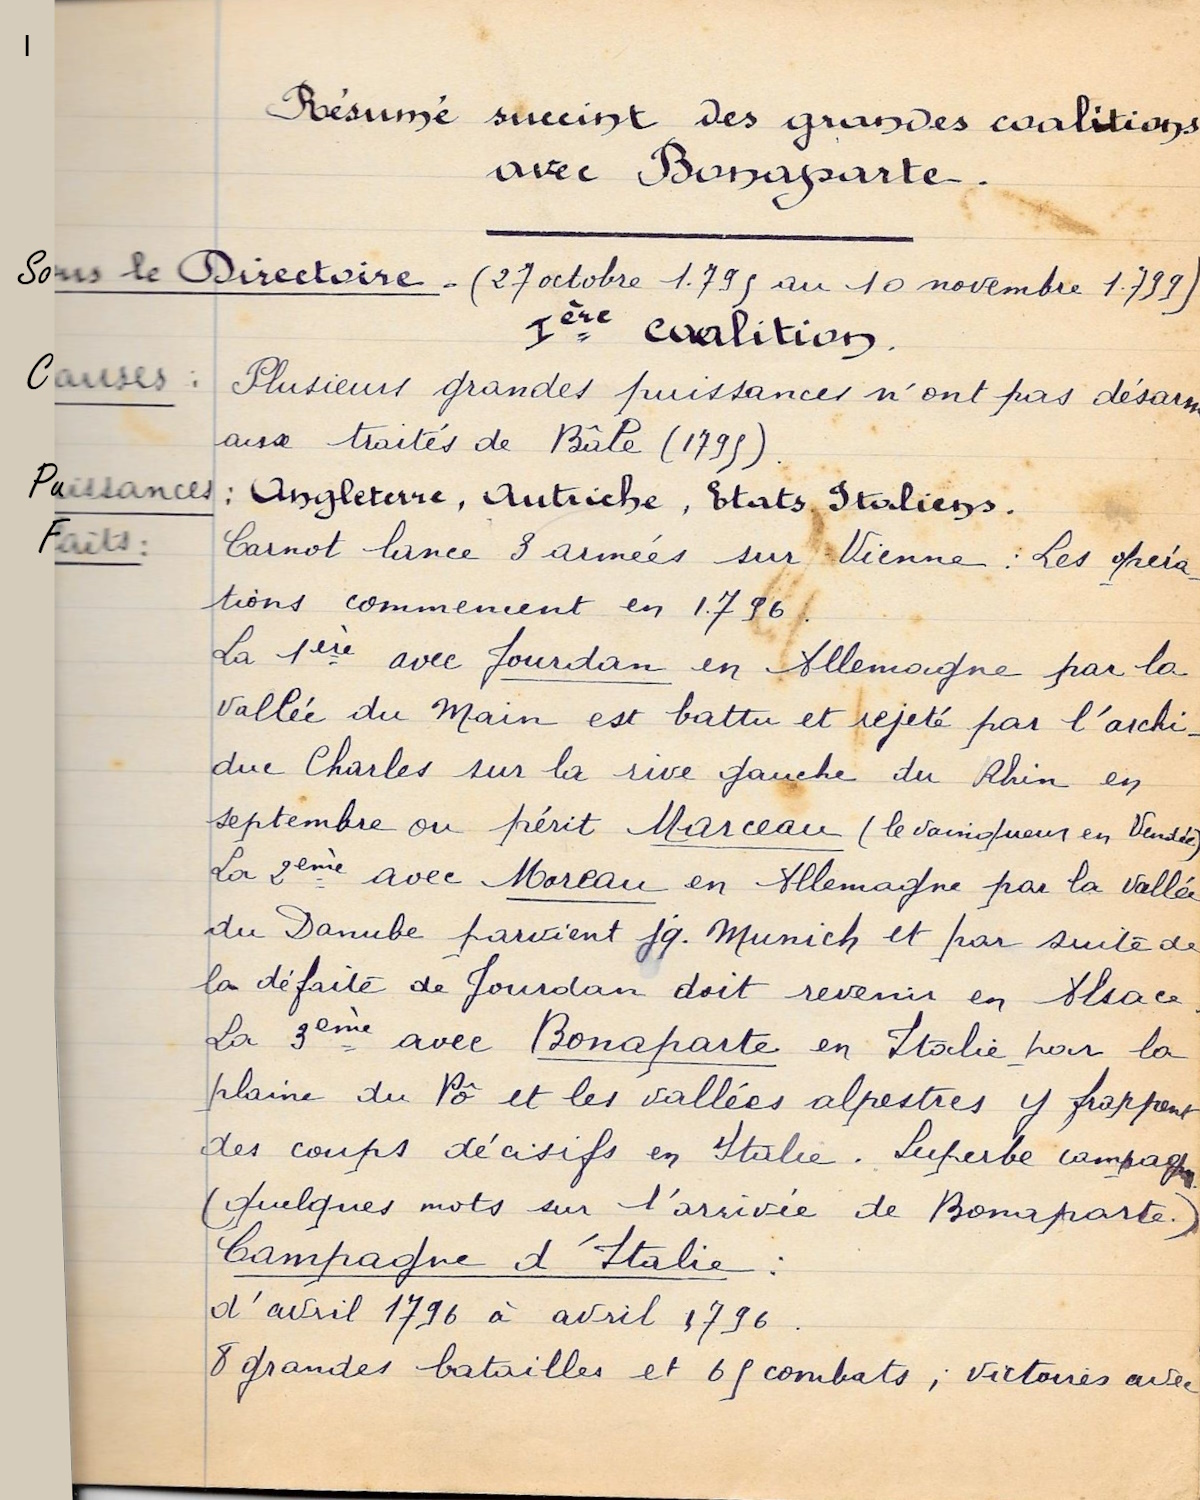 I
Résumé succint des grandes coalitions
avec Bonaparte.
Sous le Directoire - (27 octobre 1.795 au 10 novembre 1.799)
Ière coalition.
Causes : Plusieurs grandes puissances n'ont pas désarm
aux traités de Bâle (1795).
Puissances : Angleterre, Autriche, Etats Italiens.
Faits : Carnot lance 3 armées sur Vienne : Les opéra-
tions commencent en 1.796.
La 1ère avec Jourdan en Allemagne par la
vallée du Main est battu et rejeté par l'archi-
duc Charles sur la rive gauche du Rhin en
septembre ou périt Marceau (le vainqueur en Vendée)
La 2ème avec Moreau en Allemagne par la vallée
du Danube parvient jq. Munich et par suite de
la défaite de Jourdan doit revenir en Alsace.
La 3ème avec Bonaparte en Italie par la
plaine du Pô et les vallées alpestres y frappent
des coups décisifs en Italie. Superbe campagn
(quelques mots sur l'arrivée de Bonaparte.)
Campagne d'Italie :
d'avril 1796 à avril 1796.
8 grandes batailles et 65 combats ; victoires avec